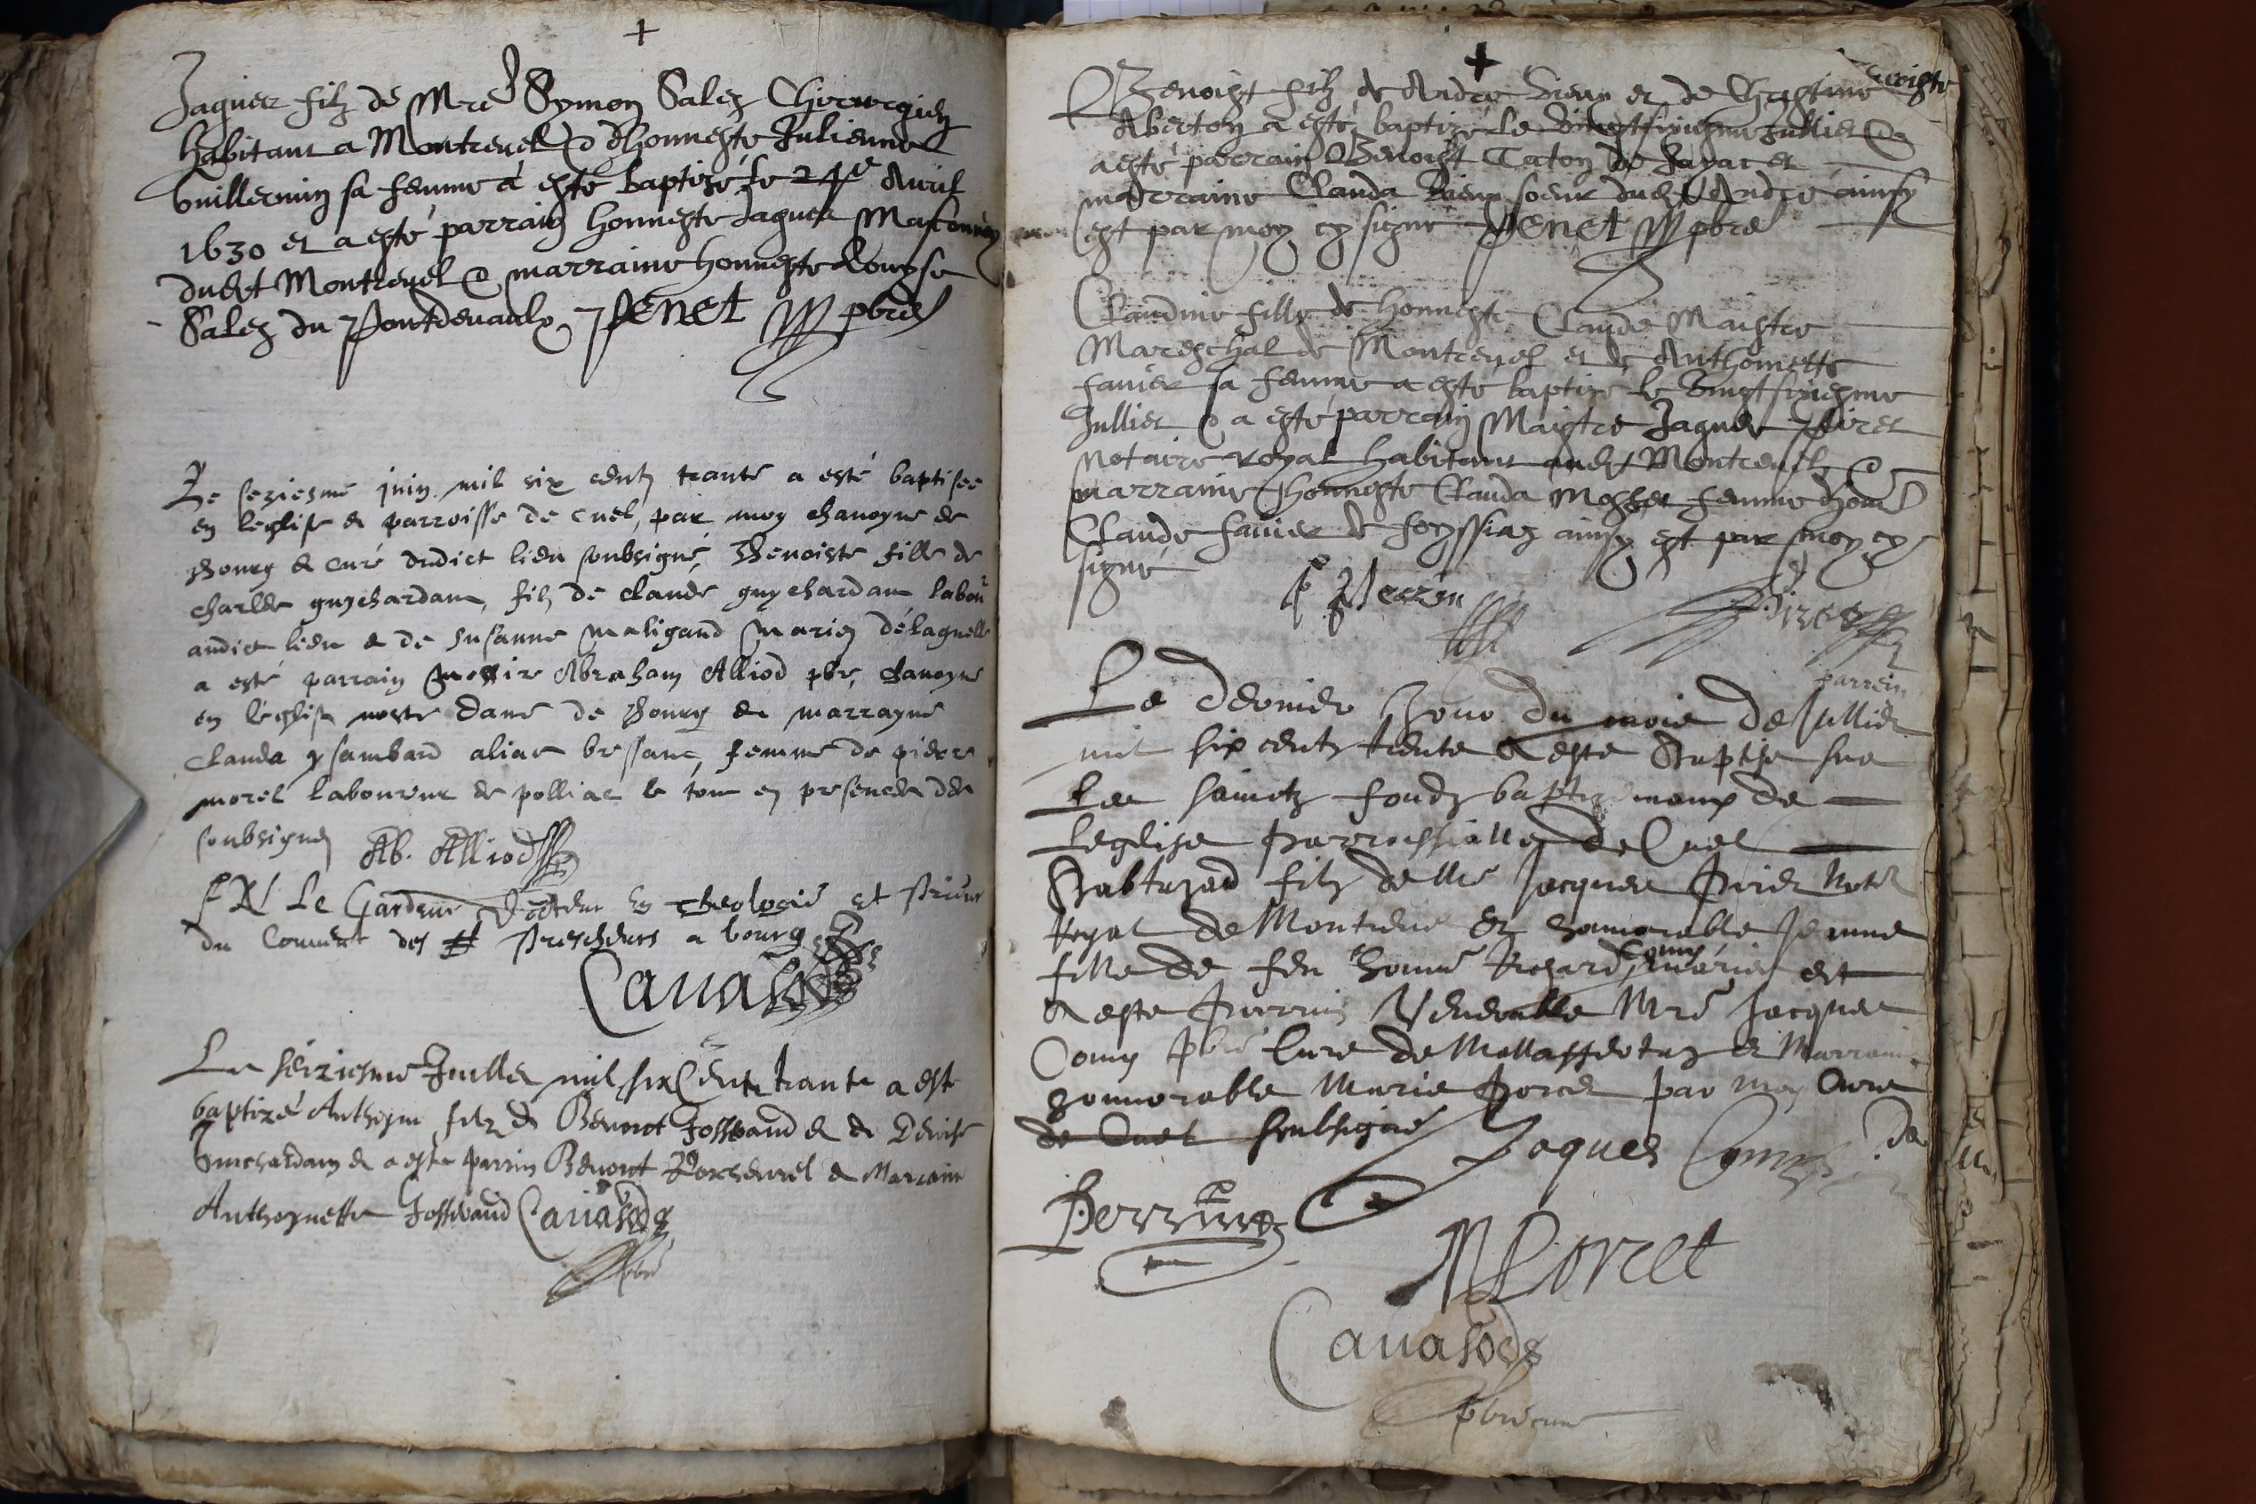 Jaques filz de Mre Symon Salez Chirurgien
habitant a Montreuel & d'honneste Julienne
Guillermin sa femme a esté baptisé le 24e Auril
1630 et a esté parrain honneste Jaques
dudit Montreuel & marraine honneste Louyse
Salez du Pontdevaulx Penet pbre
Le seziesme juin mil six centz trante a esté baptisee
en leglise & parroisse de cuel, par moy chanoyne de
Bourg & curé dudict lieu soubsigné, Benoiste fille de
charles guychardan, filz de claude guychardan labour
audict lieu & de susanne maligand maries de laquelle
a esté parrain messire Abraham Alliod pbre, chanoyne
en leglise nostre dame de Bourg & marrayne
clauda ysambard alias bressand, femme de pierre
morel laboureur de polliac le tout en presence des
soubsignez Ab. Alliod
Le Gardeur Docteur en theologie et Prieur
du Couuent des Prescheurs a bourg
Cauasod
Le seiziesme Juillet mil six Cents trante a esté
baptizé Anthoyne filz de Benoict Josserand & de Denise
Guichardan & a esté parrin Benoict & Marraine
Anthoynette Josserand Cauasod
pbre
Benoist filz de Andre Vieux et de Chrestine
Aberton a esté baptizé le vingtsixiesme Jullier &
a esté parrain Benoist Caton de Jayat et
marraine Clauda Vieux soeur dudit Andre ainsy
est par moy cy signé Penet pbre
Claudine fille de honneste Claude Maistre
Mareschal de Montreuel et de Anthoinette
fauier sa femme a esté baptizé le vingtsixiesme
Jullier & a esté parrain Maistre Jaques Piret
Notaire royal habitant audit Montreuel &
marraine honneste Clauda femme
Claude fauier de foyssiaz ainsy est par moy cy
signé
Piret
parrein
Le dernier Jour du mois de Jullier
mil six centz trente a esté Baptise sur
Les sainctz fondz baptismaux de
Leglise parrochialle de Cuel
Baltazard filz de Me Jacques Piret Notr
Royal de Montreuel & honnorable Jeanne
fille de feu honne Richard Comy
A esté parrin Venerable Mre Jacques
Comy pbre Cure de & Marraine
honnorable Marie Porcet par moy Cure
de Cuel soubsigné Jaques Comy
Perrin
M Porcet
Cauasod
pbre cure